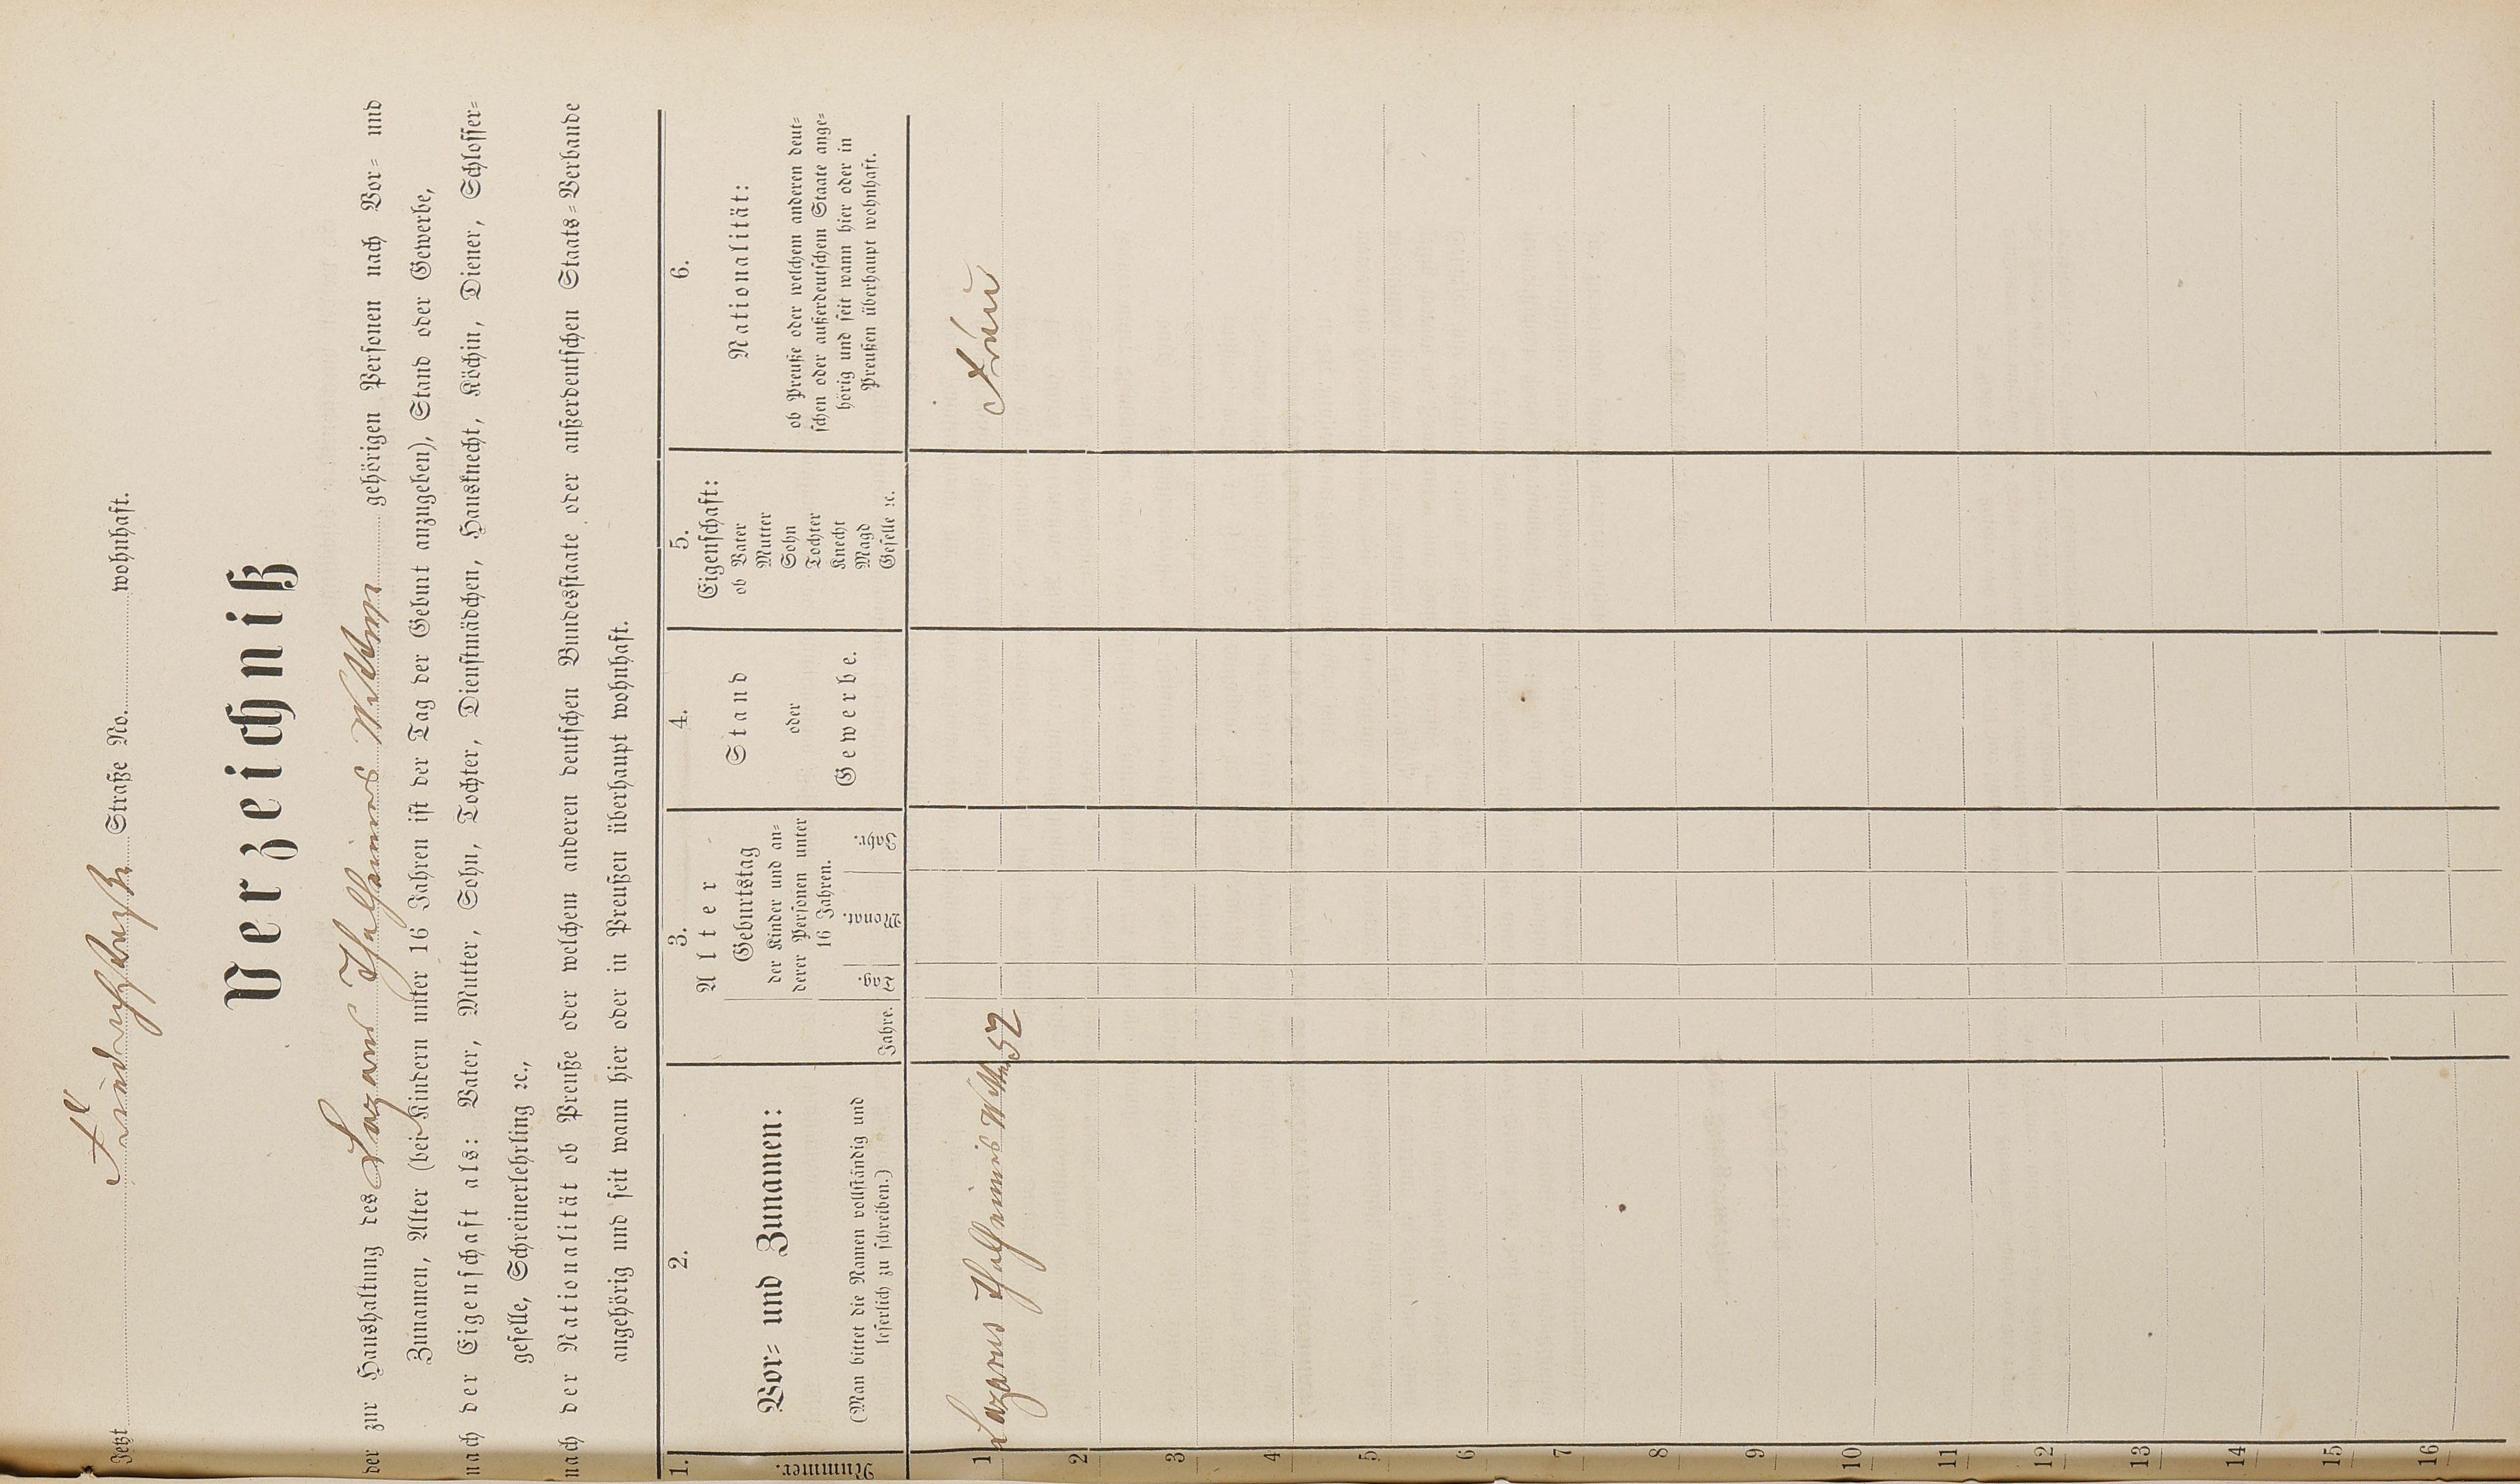 Jetzt Friedrichstraße Straße No. wohnhaft.
Verzeichniß
der zur Haushaltung des Lazarus Thalheimers Wittwe gehörigen Personen nach Vor= und
Zunamen, Alter (bei Kindern unter 16 Jahren ist der Tag der Geburt anzugeben), Stand oder Gewerbe,
nach der Eigenschaft als: Vater, Mutter, Sohn, Tochter, Dienstmädchen, Hausknecht, Köchin, Diener, Schlosser=
geselle, Schreinerlehrling ꝛc.,
nach der Nationalität ob Preuße oder welchem anderen deutschen Bundesstaate oder außerdeutschen Staats=Verbande
angehörig und seit wann hier oder in Preußen überhaupt wohnhaft.
1.
Nummer.
2.
Vor= und Zunamen:
(Man bittet die Namen vollständig und
leserlich zu schreiben.)
3.
Alter
Jahre.
Geburtstag
der Kinder und an=
derer Personen unter
16 Jahren.
Tag. Monat. Jahr.
4.
Stand
oder
Gewerbe.
5.
Eigenschaft:
ob Vater
Mutter
Sohn
Tochter
Knecht
Magd
Geselle ꝛc.
6.
Nationalität:
ob Preuße oder welchem anderen deut=
schen oder außerdeutschem Staate ange=
hörig und seit wann hier oder in
Preußen überhaupt wohnhaft.
1 Lazarus Thalheimers Wittwe 52
2
3
4
5
6
7
8
9
10
11
12
13
14
15
16